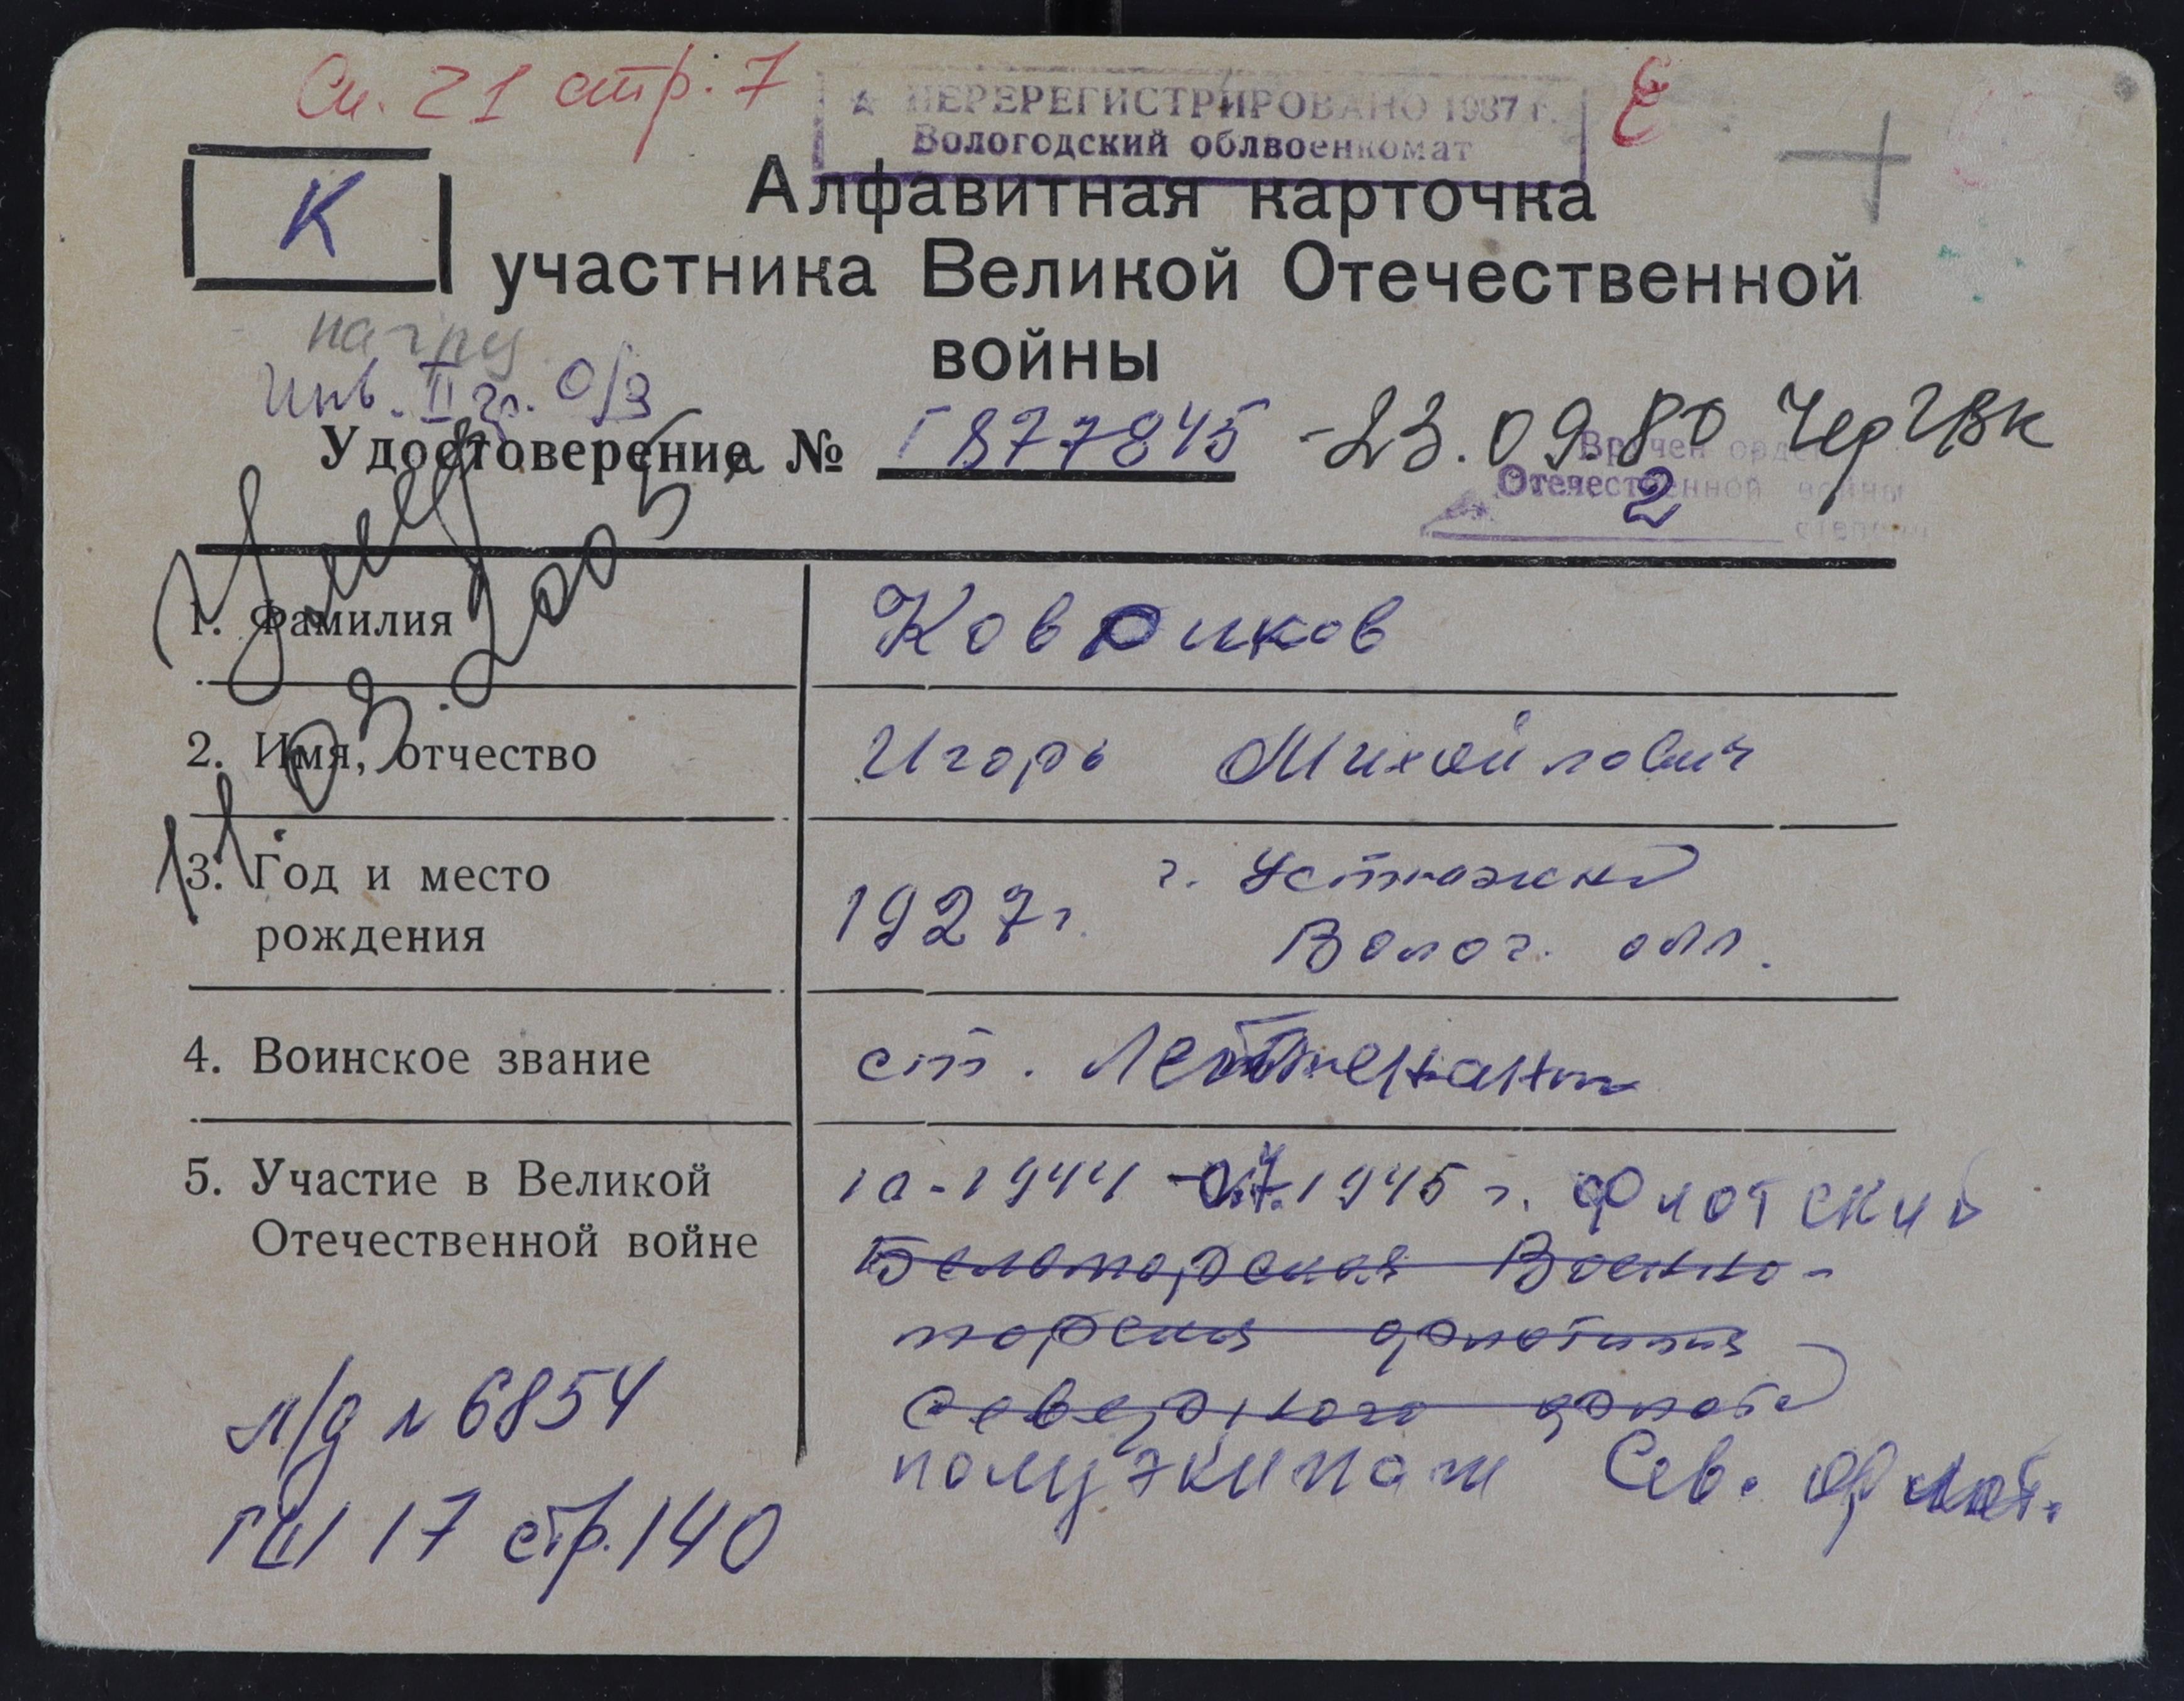 Сп. 21 стр. 7
ПЕРЕРЕГИСТРИРОВАНО 1987 г.
Вологодский облвоенкомат
К
Алфавитная карточка
участника Великой Отечественной
войны
нагру
Инв. II гр. О/З
Удостоверение № Г 877845 - 23.09.80 Чер ГВК
Вручен орден
Отечественной войны
2 степени
Умер
11.03.2005
1. Фамилия Ковриков
2. Имя, отчество Игорь Михайлович
3. Год и место
рождения
1927 г. г. Устюжна
Волог. обл.
4. Воинское звание ст. Лейтенант
5. Участие в Великой
Отечественной войне
10-1944 - 1945 г. Флотский
Беломорская Военно-
морская флотилия
Северного флота
полуэкипаж Сев. флот.
л/д № 6854
17 стр. 140